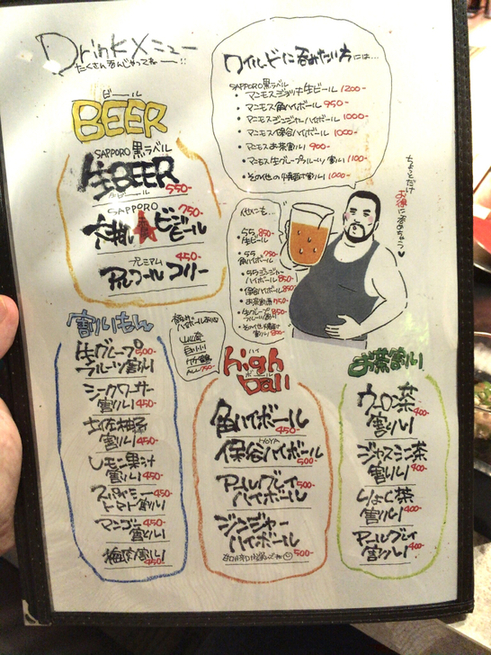 Drinkメニュー
たくさん呑んじゃってねー!!
ビール
BEER
SAPPORO 黒ラベル
生BEER
550-
SAPPORO
750-
大瓶★ビンビール
プレミアム
450-
アルコールフリー
ワイルドに呑みたい方には…
SAPPORO黒ラベル
・マニモスジョッキ生ビール 1200-
・マニモス角ハイボール 950-
・マニモスジンジャーハイボール 1000-
・マニモス保谷ハイボール 1000-
・マニモスお茶割り 900-
・マニモス生グレープフルーツ割り 1100-
・その他のマニモス割り 1000-
ちょっとだけ
お得に呑めちゃう♥
他にも…
生ビール 850-
角ハイボール 750-
ジンジャーハイボール 850-
保谷ハイボール 850-
お茶割り 750-
割りもん
生グレープフルーツ割り 500-
シークワーサー割り 450-
土佐柚子割り 450-
レモン果汁割り 450-
スパイシートマト割り 450-
マンゴー割り 450-
梅干割り 450-
ハイ
high
ボール
ball
角ハイボール
450-
HOYA
保谷ハイボール
500-
アールグレイハイボール
500-
ジンジャーハイボール
500-
お茶割り
ウーロン茶割り 400-
ジャスミン茶割り 400-
りょく茶割り 400-
アールグレイ割り 400-